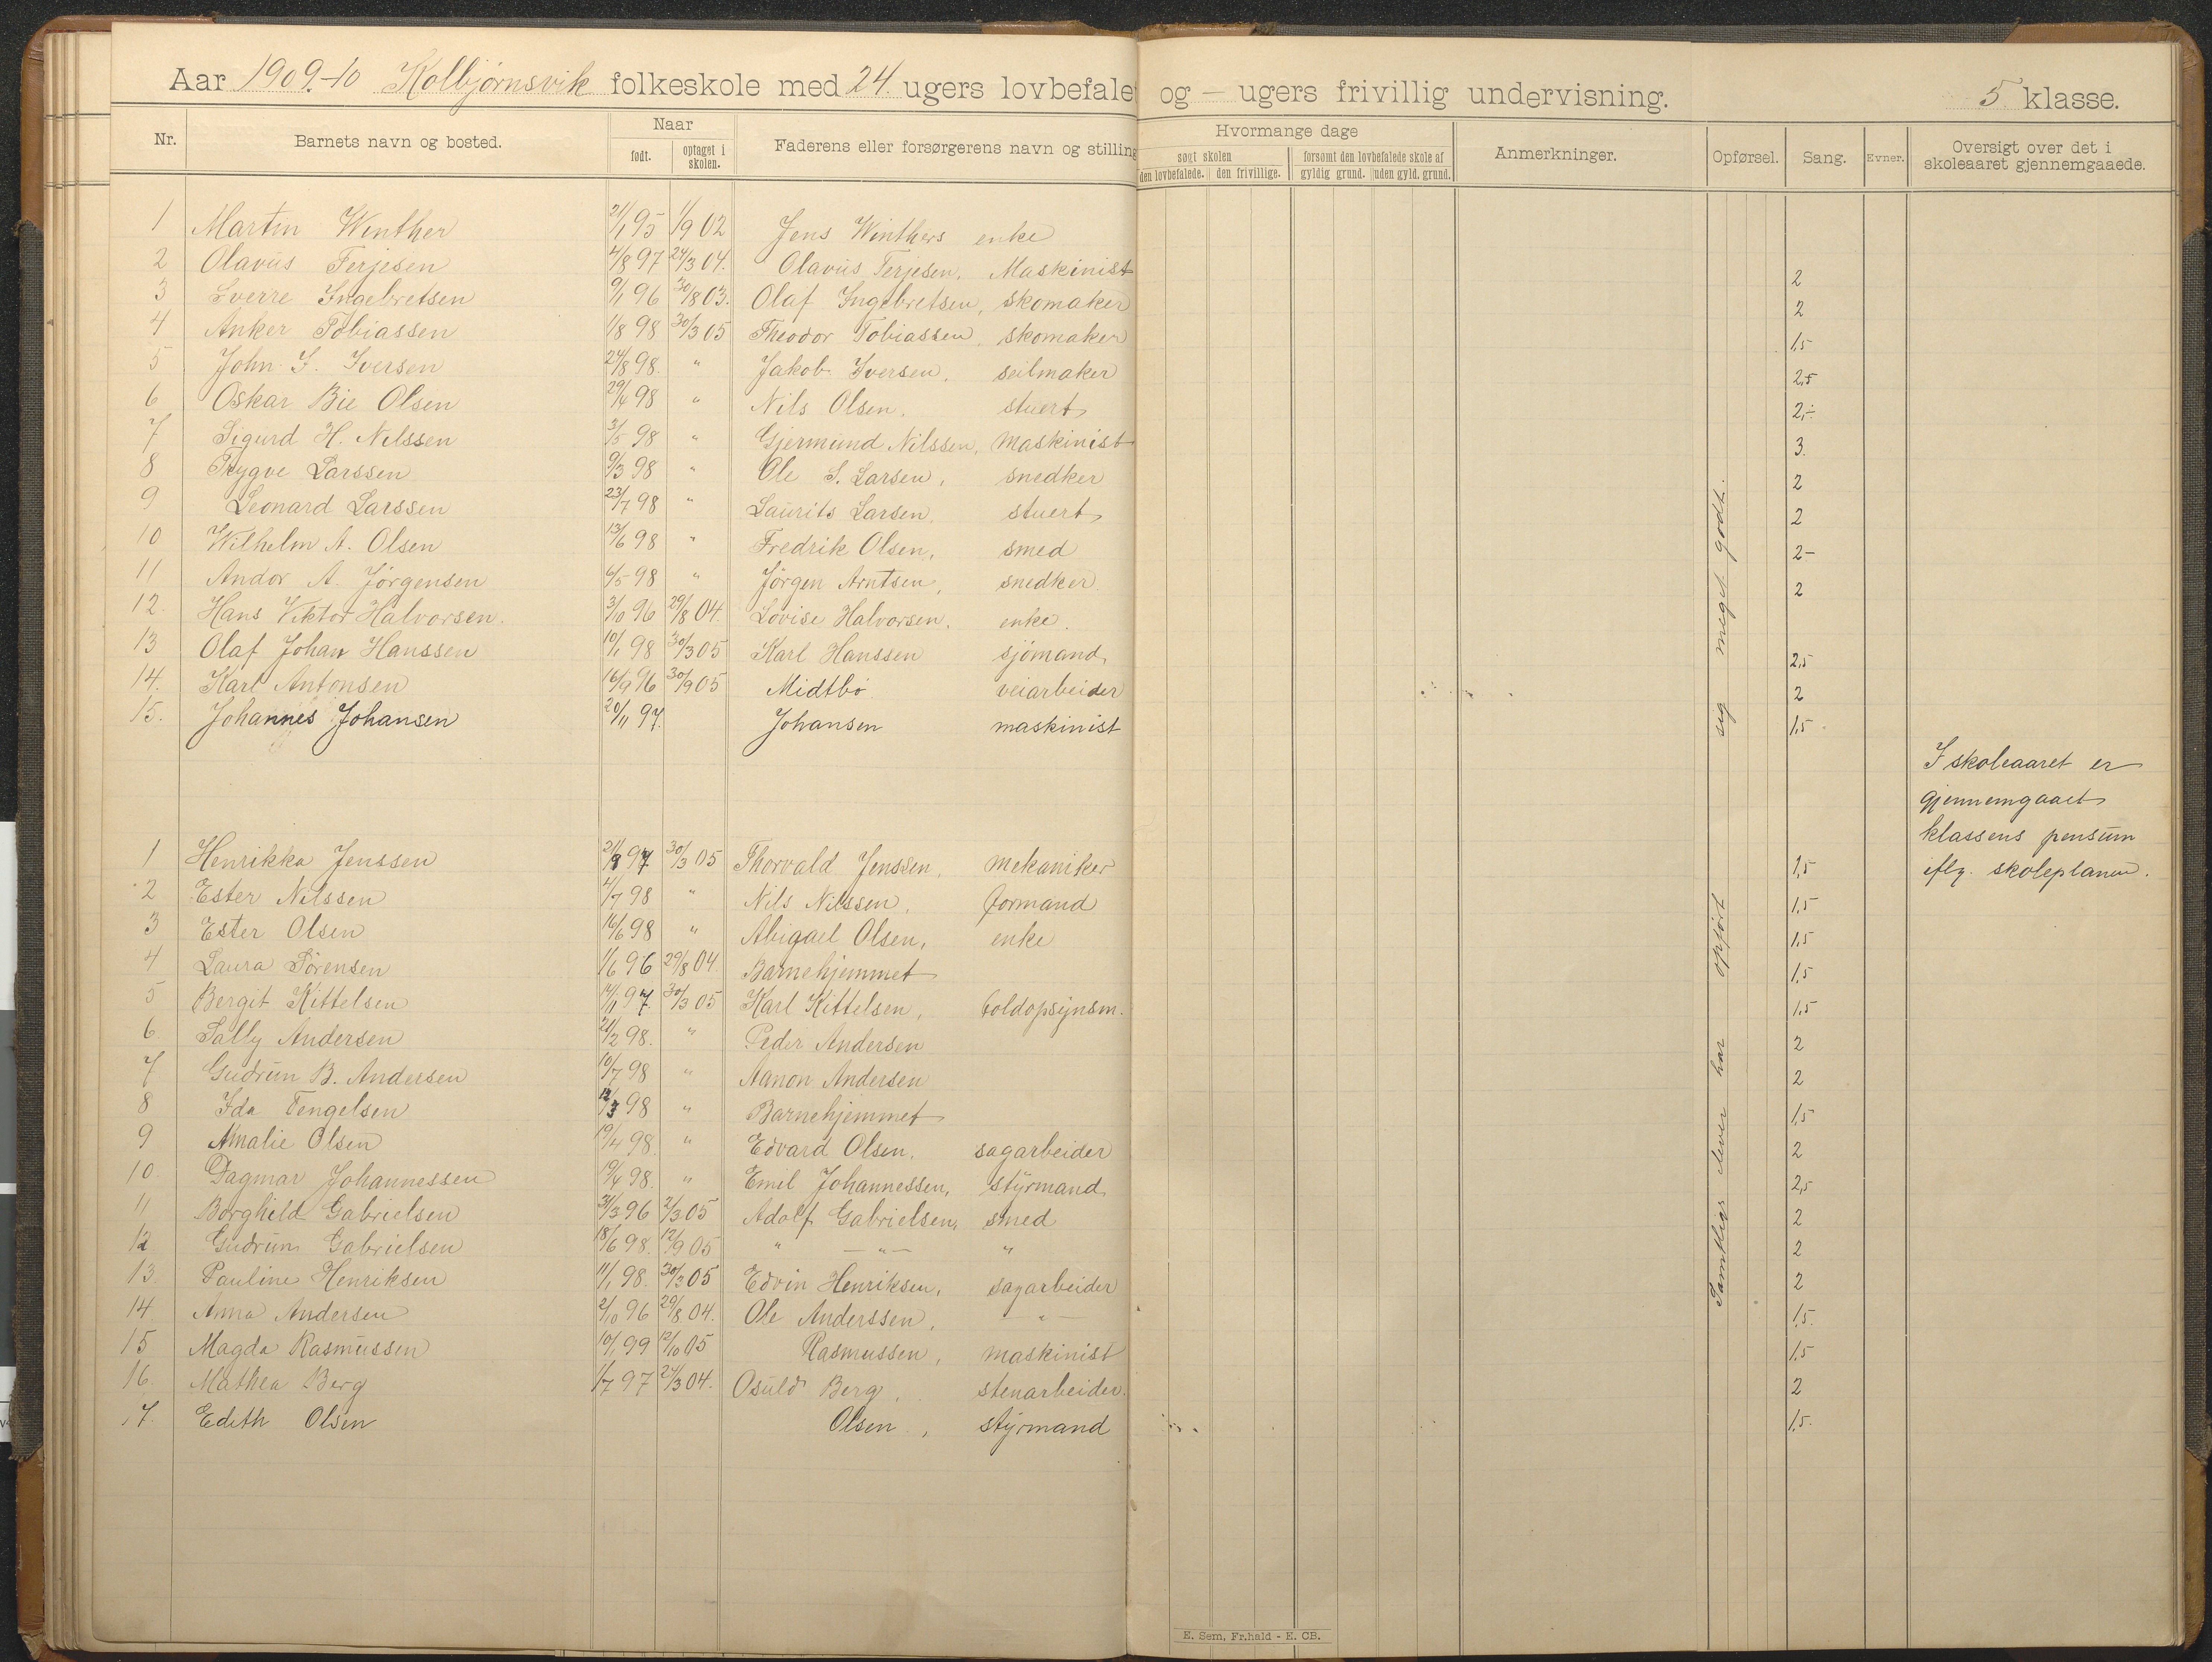 Aar 1909-10 Kolbjørnsvik folkeskole med 24. ugers lovbefale og — ugers frivillig undervisning. 5 klasse.
Nr. Barnets navn og bosted. Naar født. optaget i skolen. Faderens eller forsørgerens navn og stilling Hvormange dage søgt skolen den lovbefalede. den frivillige. forsømt den lovbefalede skole af gyldig grund. uden gyld. grund. Anmerkninger. Opførsel. Sang. Evner. Oversigt over det i skoleaaret gjennemgaaede.
1 Martin Winther 21/1 95 1/9 02 Jens Winthers enke
2 Olavus Terjesen 4/8 97 24/3 04. Olavus Terjesen, Maskinist 2
3 Sverre Ingebretsen 9/1 96 30/8 03. Olaf Ingebretsen, skomaker 2
4 Anker Tobiassen 1/8 98 30/3 05 Theodor Tobiassen, skomaker 1,5
5 John I. Iversen 24/8 98. " Jakob Iversen, seilmaker 2,5
6 Oskar Bie Olsen 29/4 98 " Nils Olsen, stuert 2,÷
7 Sigurd H. Nilssen 3/5 98 " Gjermund Nilssen, maskinist 3.
8 Trygve Larssen 9/3 98 " Ole S. Larsen, snedker 2
9 Leonard Larssen 23/7 98 " Laurits Larsen, stuert 2
10 Wilhelm A. Olsen 13/6 98 " Fredrik Olsen, smed 2-
11 Andor A. Jørgensen 6/5 98 " Jørgen Arntsen, snedker 2
12. Hans Viktor Halvorsen. 3/10 96 29/8 04. Lovise Halvorsen, enke.
13 Olaf Johan Hanssen 10/1 98 30/3 05 Karl Hanssen sjømand, 2,5
14. Karl Antonsen 16/9 96 30/9 05 Midtbø veiarbeider 2
15. Johannes Johansen 20/11 97. Johansen maskinist 1,5
I skoleaaret er
gjennemgaaet
klassens pensum
iflg. skoleplanen.
1 Henrikka Jenssen 21/8 97 30/3 05 Thorvald Jenssen, mekaniker 1,5
2 Ester Nilssen 4/7 98 " Nils Nilssen, formand 1,5
3 Ester Olsen 16/6 98 " Abigael Olsen, enke 1,5
4 Laura Sørensen 1/6 96 29/8 04. Barnehjemmet 1,5
5 Bergit Kittelsen 14/11 97. 30/3 05 Karl Kittelsen, toldopsynsm. 1,5
6. Sally Andersen 21/2 98. " Peder Andersen 2
7 Gudrun B. Andersen 10/7 98 " Aanon Andersen 2
8 Ida Tengelsen 12/3 98 " Barnehjemmet 1,5
9 Amalie Olsen 19/4 98. " Edvard Olsen, sagarbeider 2
10. Dagmar Johannessen 19/4 98. " Emil Johannessen, styrmand, 2,5
11 Borghild Gabrielsen 31/3 96 2/3 05 Adolf Gabrielsen, smed 2
12 Gudrun Gabrielsen 18/6 98. 12/9 05 " —"— " 2
13. Pauline Henriksen 11/1 98. 30/3 05 Edvin Henriksen, sagarbeider 2
14. Anna Andersen 2/10 96 29/8 04. Ole Anderssen, — " — 1,5.
15 Magda Rasmussen 10/1 99 12/10 05 Rasmussen, maskinist 1,5
16. Mathea Berg 1/7 97 24/3 04. Osuld Berg, stenarbeider. 2
17. Edith Olsen Olsen, styrmand 1,5.
Samtlige elever har opført sig meget godt.
E. Sem, Fr.hald - E. CB.